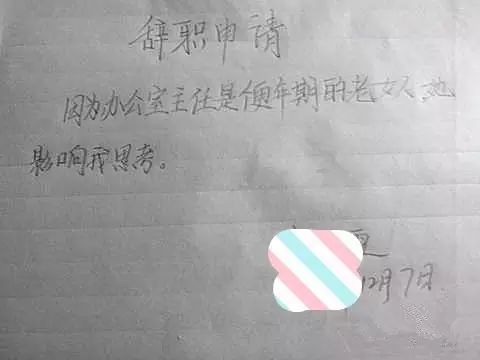 辞职申请
因为办公室主任是便年期的老女人,她
影响我思考。
12月7日